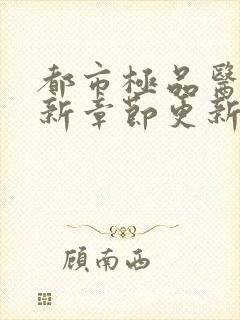 都市極品醫
新章節更新
顾南西